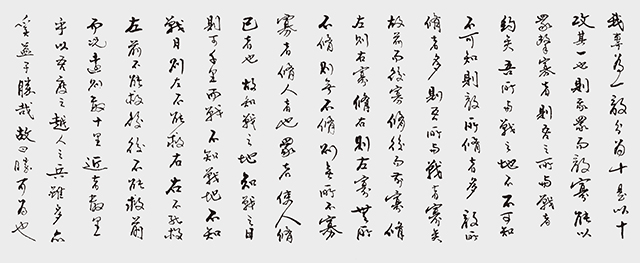 我專為一敵分為十是以十
攻其一也則我眾而敵寡能以
眾擊寡者則吾之所与戰者
約矣吾所与戰之地不不可知
不可知則敵所備者多敵所
備者多則吾所与戰者寡矣
故前而後寡備後而前寡備
左則右寡備右則左寡無所
不備則無不備則無所不寡
寡者備人者也眾者使人備
己者也故知戰之地知戰之日
則可千里而戰不知戰地不知
戰日則左不能救右右不能救
左前不能救後後不能救前
而況遠則數十里近者數里
乎以吾度之越人之兵雖多亦
奚益于勝哉故曰勝可為也